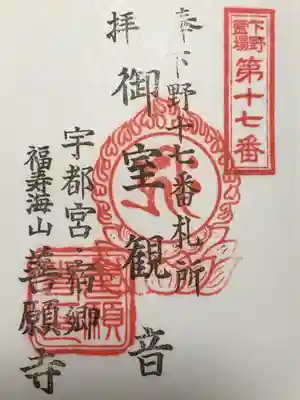 下野
霊場
第十七番
奉
拝
下野十七番札所
御室観音
宇都宮・宿郷
福寿海山
善願寺